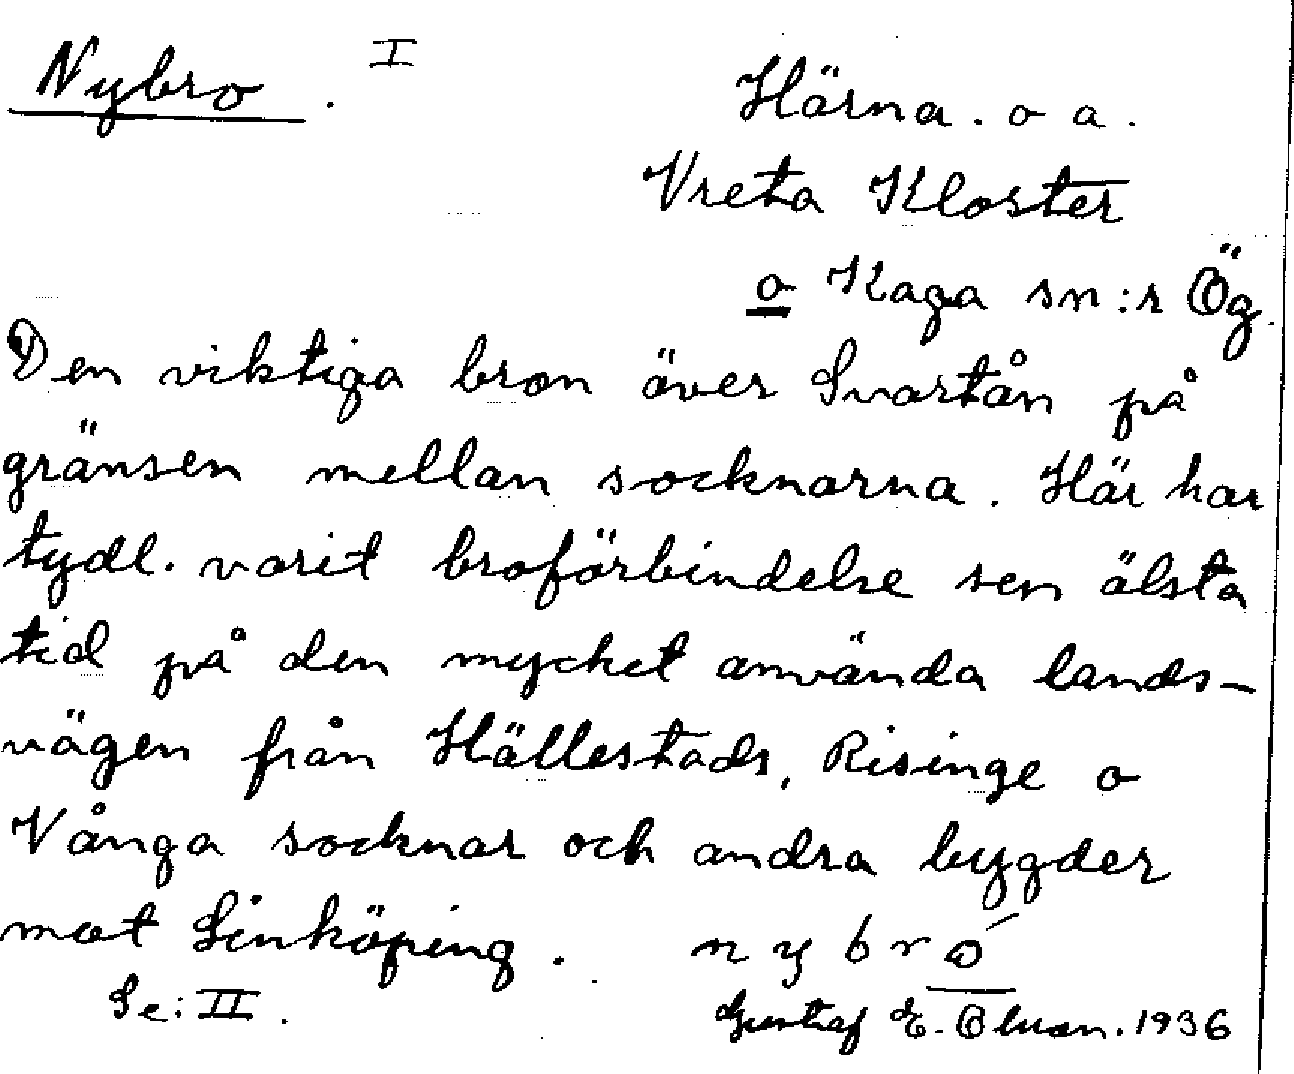 Nybro. I
Härna. o a.
Vreta Kloster
o Kaga sn:r Ög.
Den viktiga bron över Svartån på
gränsen mellan socknarna. Här har
tydl. varit broförbindelse sen älsta
tid på den mycket använda lands-
vägen från Hällestads, Risinge o
Vånga socknar och andra bygder
mot Linköping. nybró
Se: II.
Gustaf E.
1936